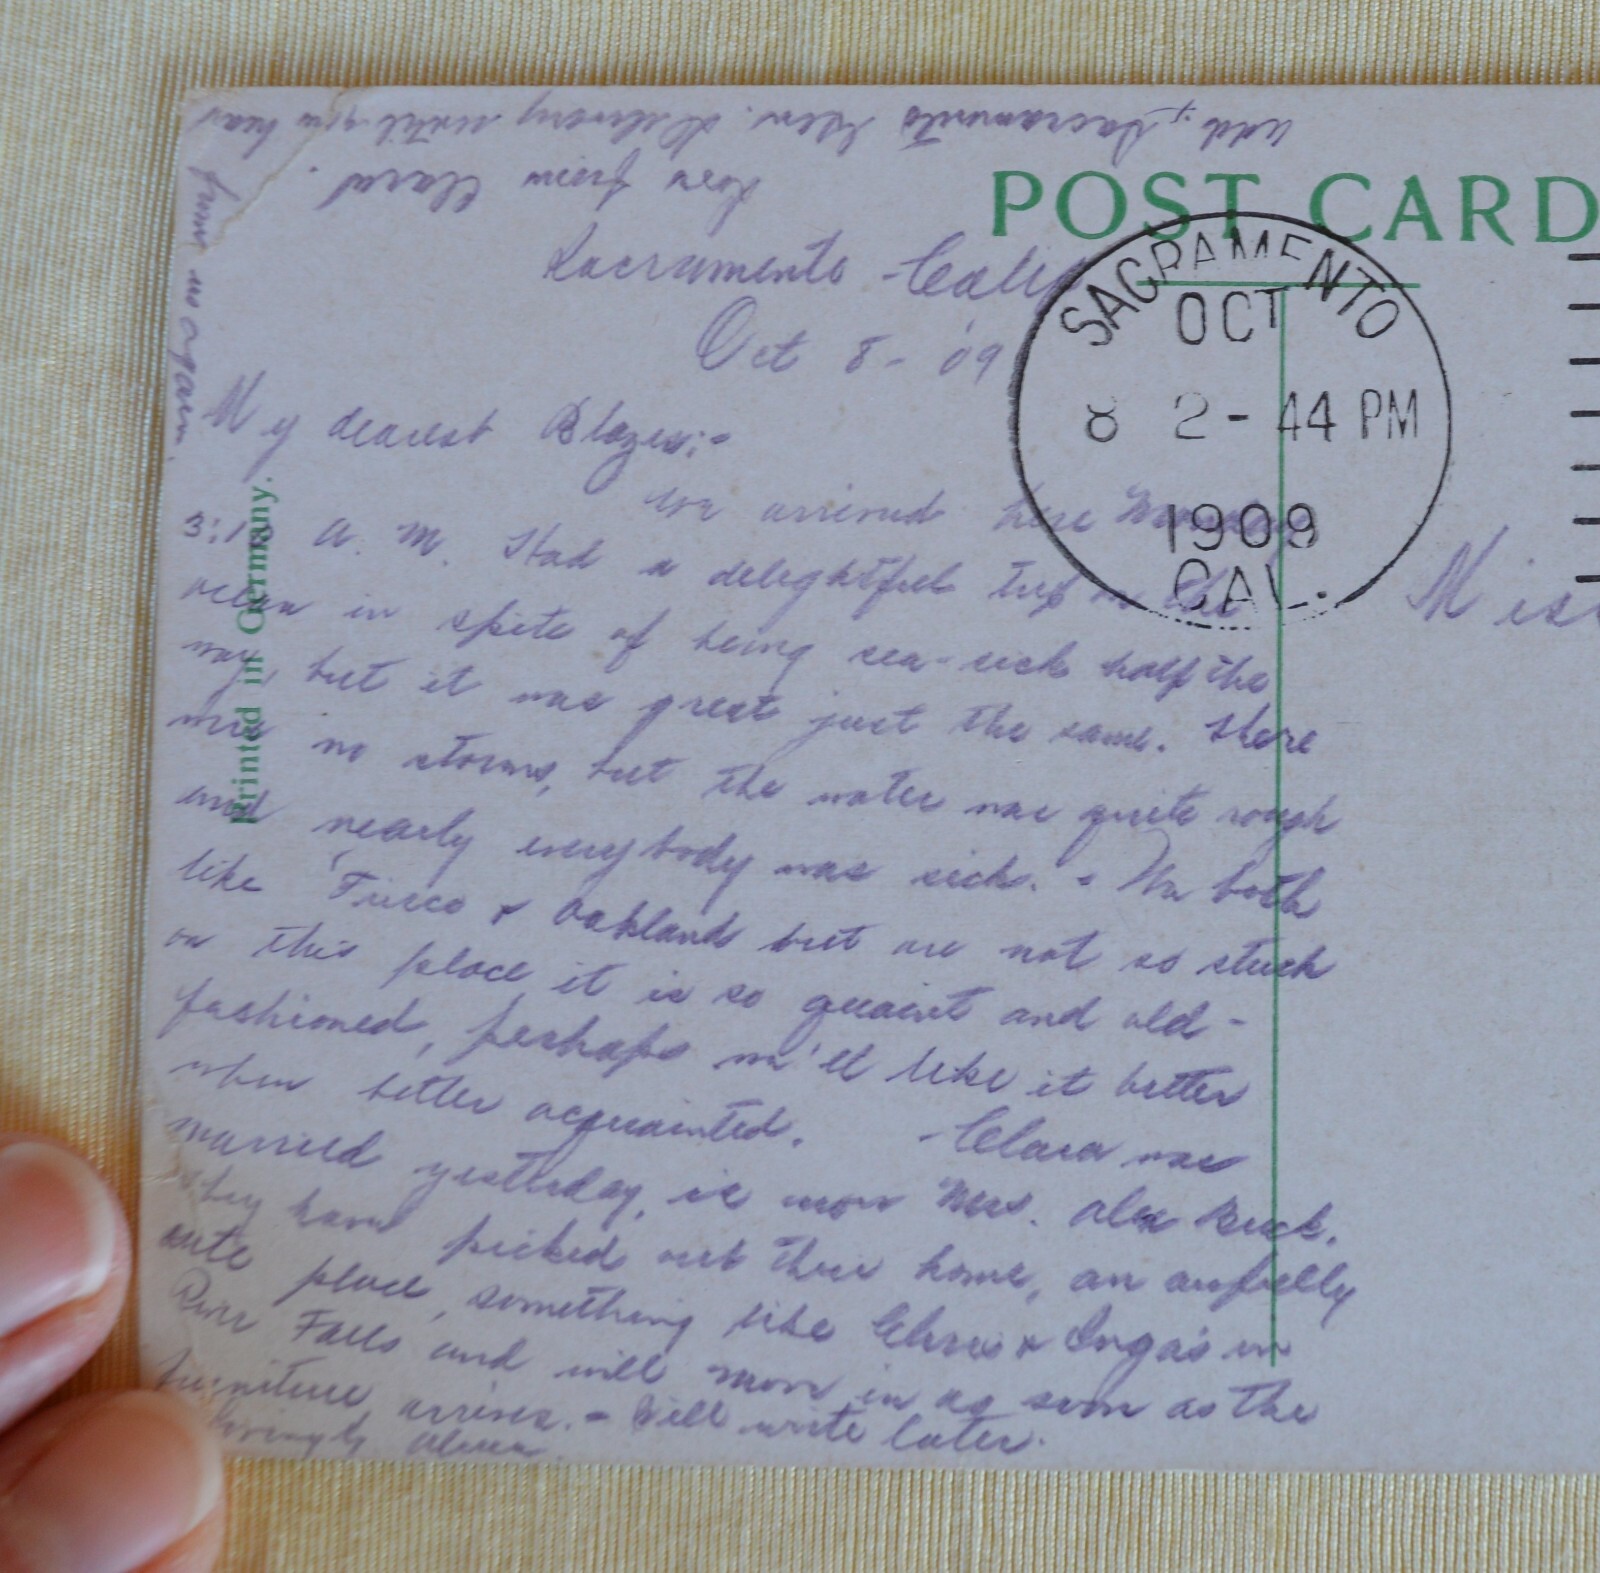 Sacramento Calif
Oct 8 - '09
My dearest Blazes:-
We arrived here
3:15 A. M. Had a delightful trip on the
ocean in spite of being sea-sick half the
way, but it was great just the same. There
were no storms, but the water was quite rough
and nearly everybody was sick. - We both
like 'Frisco & Oakland but are not so stuck
on this place it is so quaint and old-
fashioned, perhaps we'll like it better
when better acquainted. Clara was
married yesterday, is now Mrs. Alex Buck.
They have picked out their home, an awfully
cute place, something like Chris & Inga's in
River Falls and will move in as soon as the
furniture arrives. - Will write later.
Lovingly
Add; Sacramento Gen. Delivery until you hear
from us again.
Love from Clara.
POST CARD
SACRAMENTO
OCT
8 2-44 PM
1909
CAL.
Miss
Printed in Germany.